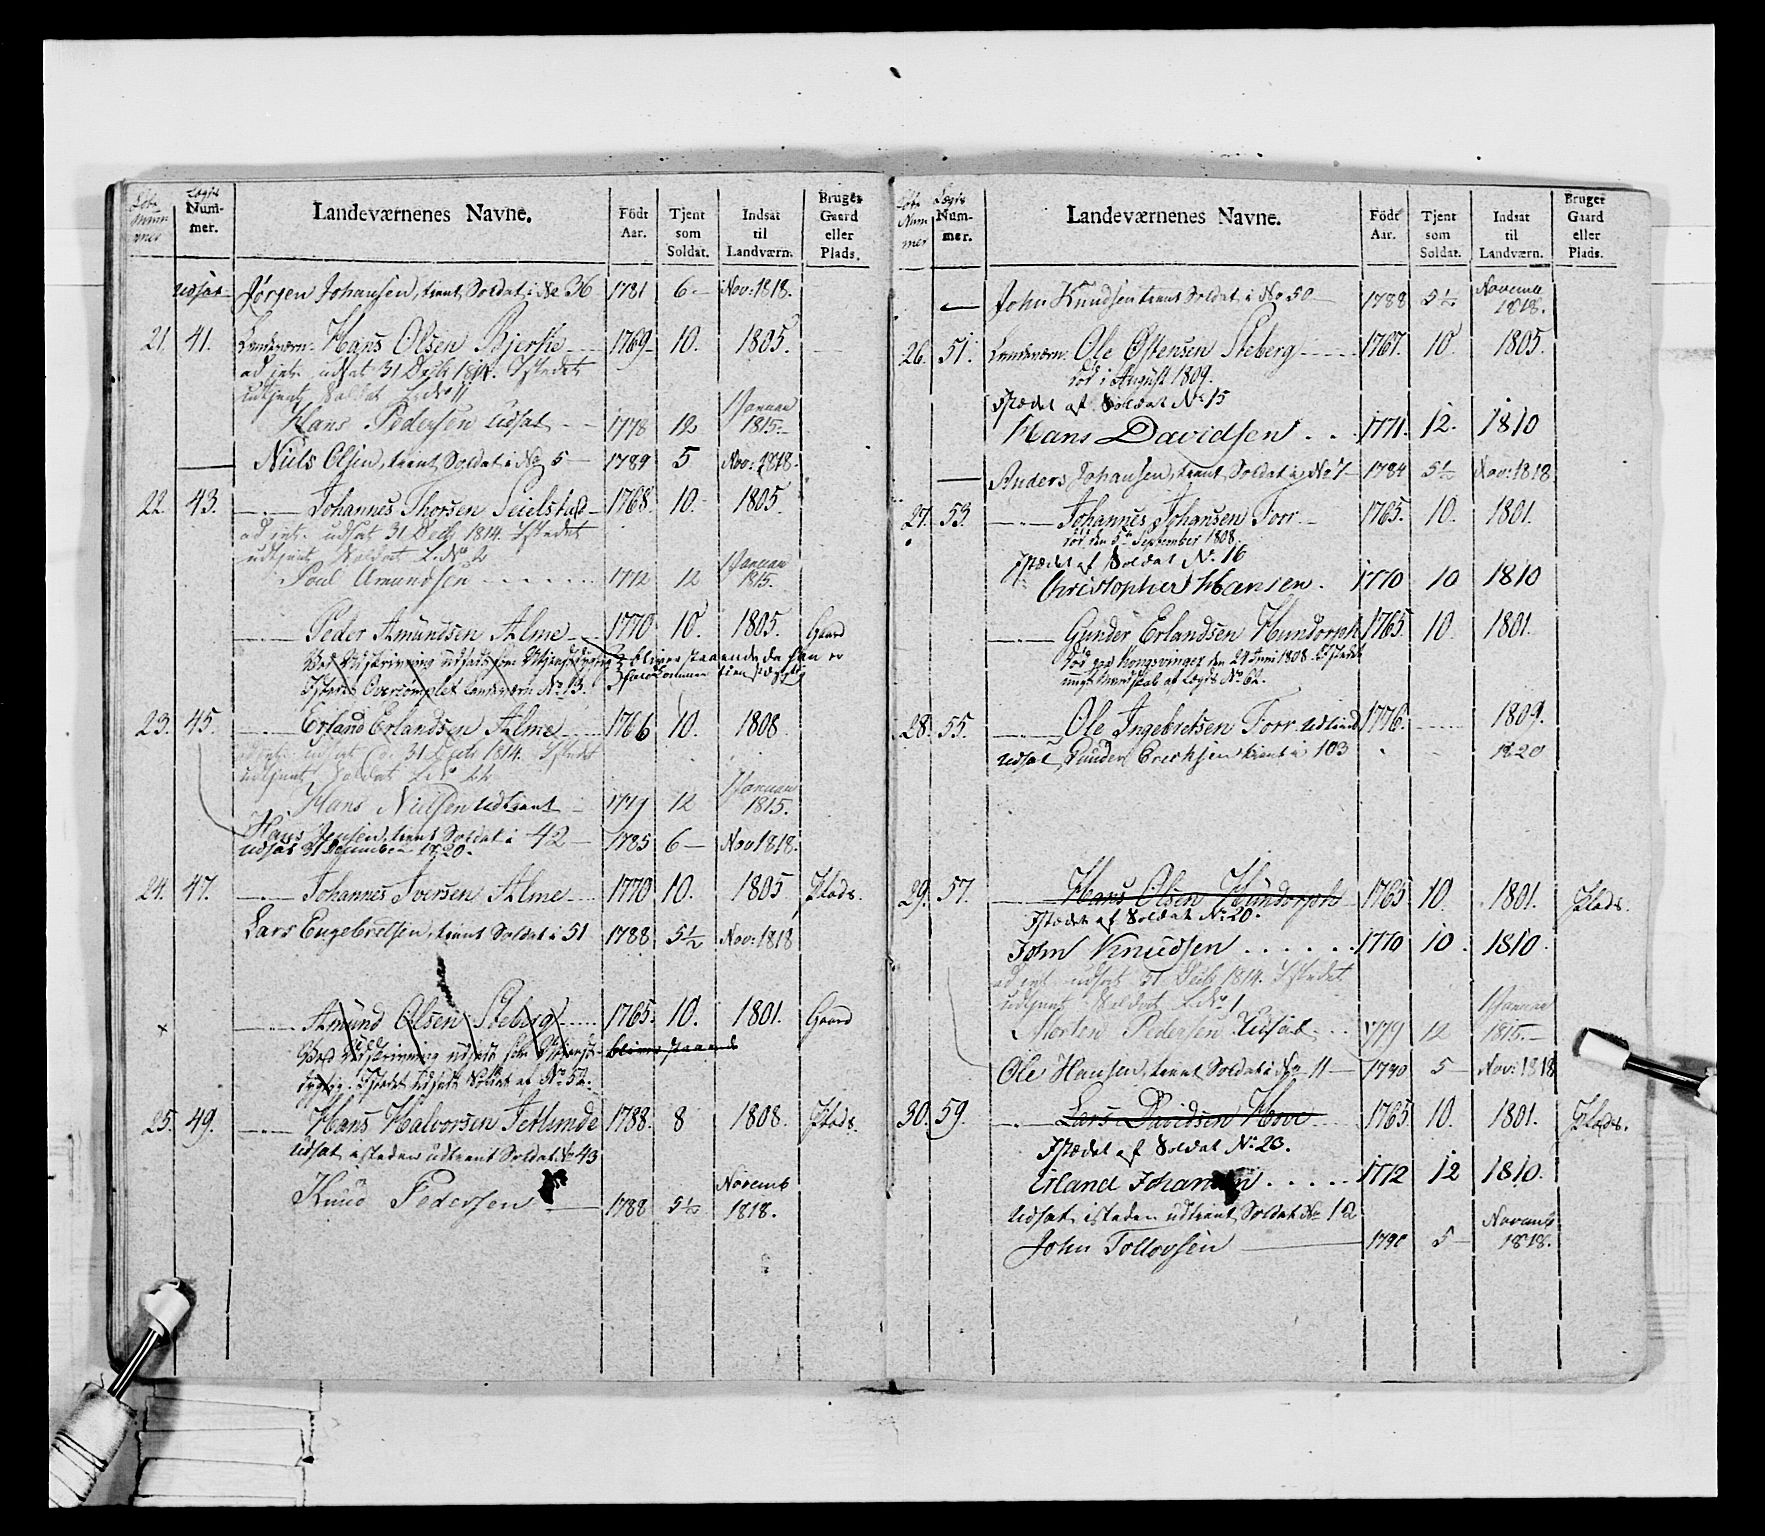 Løbe Nummer
Lægds Nummer.
Landeværnenes Navne.
Født Aar.
Tjent som Soldat.
Indsat til Landværn.
Bruger Gaard eller Plads.
udsat Jørgen Johansen, tient Soldat i No 36 1781 6 Nov: 1818.
21. 41. Landeværn Hans Olsen Bjerke 1769 10. 1805.
ad int. udsat 31 Decb 1814. Istedet
udtjent Soldat L. No 11
Hans Pedersen udsat 1778 12 Januar 1815.
Niels Olsen, tient Soldat i No 5 1789 5 Nov: 1818.
22. 43. Johannes Thorsen Seielstad 1768. 10. 1805.
ad int. udsat 31 Decb 1814. Istedet
udtjent Soldat L. No 2
Poul Amundsen 1772 12 Januar 1815.
Peder Amundsen Alme 1770 10. 1805. Gaard
Ved Udskrivning udsatt som
bliver staaende da han er
Istedet Overcomplet Landeværn No 13.
23. 45. Erland Erlandsen Alme 1766 10. 1808
udsat 31 Decb 1814. Istedet
udtjent Soldat L. No
Hans Nielsen udtient 1779 12 Januar 1815.
Hans Jensen, tient Soldat i 42 1785 6 Nov 1818.
udsat 31 December 1820.
24. 47. Johannes Iversen Alme 1770 10. 1805 Plads.
Lars Engebretsen, tient Soldat i 51 1788 5½ Nov: 1818
× Amund Olsen Steberg 1765. 10. 1801. Gaard
Ved Udskrivning udsatt som
bliver staaende
dygtig. Istedet udsatt Soldat af No 52.
25. 49. Hans Halvorsen Tetlunde 1788. 8 1808. Plads.
udsat isteden udtient Soldat No 43
Knud Pedersen 1788 5½ Novemb 1818.
Løbe Nummer
Lægds Nummer.
Landeværnenes Navne.
Født Aar.
Tjent som Soldat.
Indsat til Landværn.
Bruger Gaard eller Plads.
John Knudsen tient Soldat i No 50 1788 5½ Novemb 1818.
26. 51. Landeværn: Ole Østensen Steberg 1767. 10. 1805.
død i August 1809.
Istædet af Soldat No 15
Hans Davidsen 1771. 12. 1810
Anders Johansen, tient Soldat i No 7 1784 5½ Nov: 1818.
27. 53. Johannes Johansen Forr 1765. 10. 1801.
død den 5te September 1808.
Istædet af Soldat No 16
Christopher Hansen. 1770 10 1810
Gunder Erlandsen Hundorph 1765. 10. 1801.
død paa Kongsvinger den 29 Juni 1808. Istedet
ungt Mandskab af Lægds No 62.
28. 55. Ole Ingebretsen Forr 1776. 1809.
udsat Gunder Erichsen tient i 103 1820
29. 57. Hans Olsen Hundorph 1765 10. 1801. Plads.
Istædet af Soldat No 20.
John Knudsen 1770 10 1810.
ad int. udsat 31 Decb 1814. Istedet
udtjent Soldat L. No 1
Morten Pedersen udsat 1779 12 Januar 1815.
Ole Hansen, tient Soldat i No 11 1790 5 Nov: 1818
30. 59. Lars Davidsen Hove 1765 10. 1801. Plads.
Istædet af Soldat No 23.
Erland Johansen 1772 12 1810.
udsat isteden udtient Soldat No 12
John Tollovsen 1790 5 Novemb 1818.